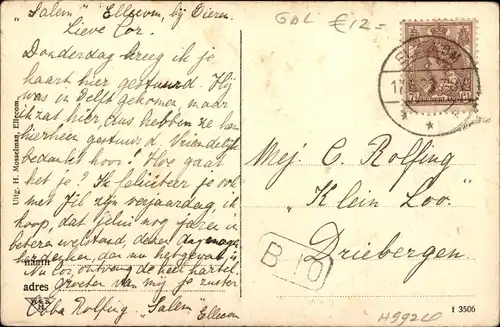 "Salem" Ellecom, bij Dieren.
Lieve Cor.
Donderdag kreeg ik je
kaart hier gestuurd. Hij
was in Delft gekomen, maar
ik zat hier, dus hebben ze hem
hierheen gestuurd. Vriendelijk
bedankt hoor! Hoe gaat
het je? Ik feliciteer je ook
met zijn verjaardag, ik
hoop, dat jelui nog jaren in
betere welstand,
dan nu het geval is.
Nu Cor, ontvang de heel hartel.
groeten van mij je zuster
Coba Rolfing. "Salem" Ellecom
naam
adres
Uitg. H. Mosselman, Ellecom.
GDL €12=
Mej. C. Rolfing
"Klein Loo"
Driebergen.
B 10
1 3506
H99200